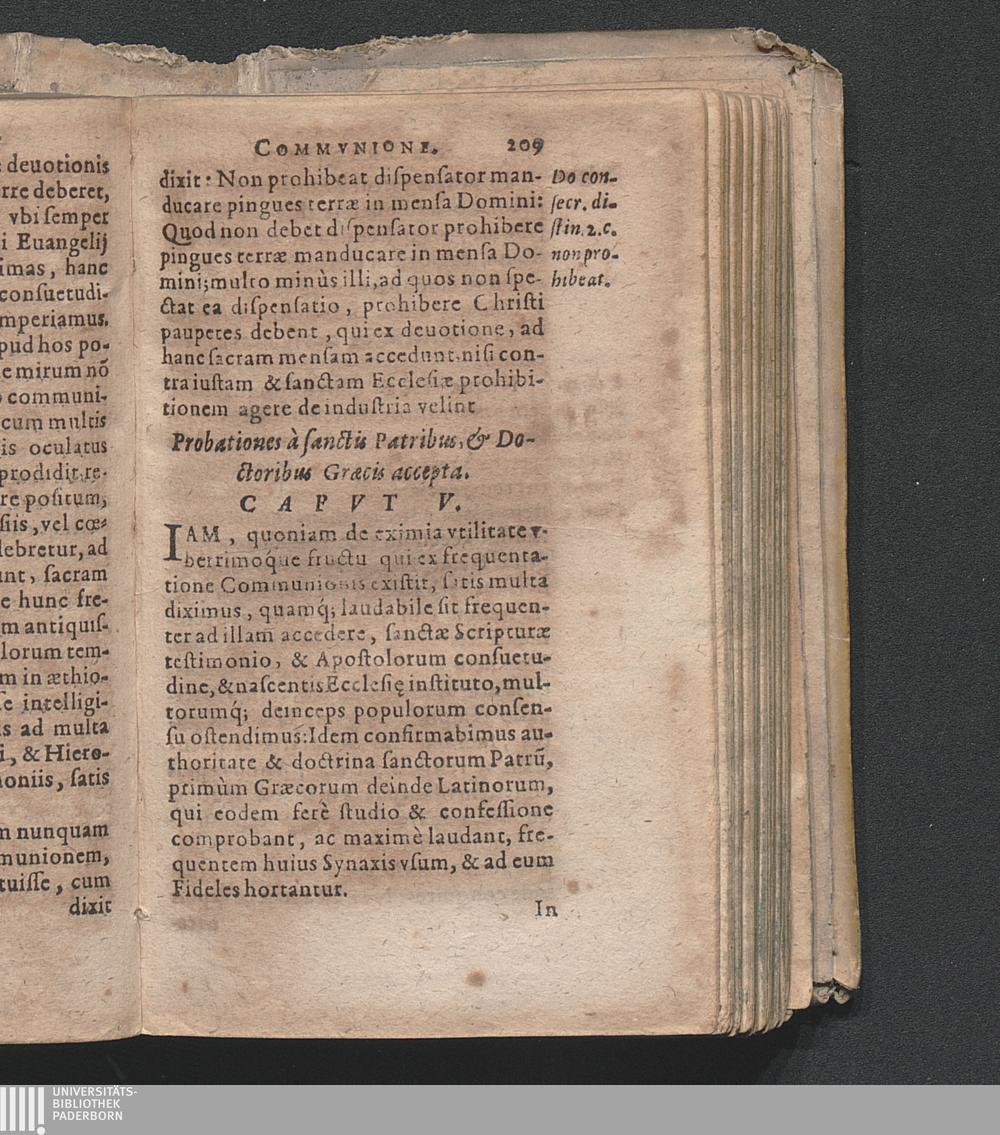 deuotionis
rre deberet,
vbi semper
i Euangelij
imas, hanc
consuetudi-
mperiamus.
pud hos po-
e mirum nõ
communi-
cum multis
is oculatus
prodidit, re-
re positum,
siis, vel cœ-
lebretur, ad
unt, sacram
e hunc fre-
m antiquis-
lorum tem-
m in æthio-
se intelligi-
s ad multa
i, & Hiero-
oniis, satis
m nunquam
munionem,
tuisse, cum
dixit
COMMVNIONE. 209
dixit: Non prohibeat dispensator man-
ducare pingues terræ in mensa Domini:
Quod non debet dispensator prohibere
pingues terræ manducare in mensa Do-
mini; multo minùs illi, ad quos non spe-
ctat ea dispensatio, prohibere Christi
pauperes debent, qui ex deuotione, ad
hanc sacram mensam accedunt, nisi con-
tra iustam & sanctam Ecclesiæ prohibi-
tionem agere de industria velint
Do con-
secr. di-
stin. 2. c.
non pro-
hibeat.
Probationes à sanctis Patribus, & Do-
ctoribus Græcis accepta.
CAPVT V.
IAM, quoniam de eximia vtilitate v-
berrimoque fructu qui ex frequenta-
tione Communionis existit, satis multa
diximus, quamq́; laudabile sit frequen-
ter ad illam accedere, sanctæ Scripturæ
testimonio, & Apostolorum consuetu-
dine, & nascentis Ecclesię instituto, mul-
torumq́; deinceps populorum consen-
su ostendimus: Idem confirmabimus au-
thoritate & doctrina sanctorum Patrũ,
primùm Græcorum deinde Latinorum,
qui eodem ferè studio & confessione
comprobant, ac maximè laudant, fre-
quentem huius Synaxis vsum, & ad eum
Fideles hortantur.
In
UNIVERSITÄTS-
BIBLIOTHEK
PADERBORN